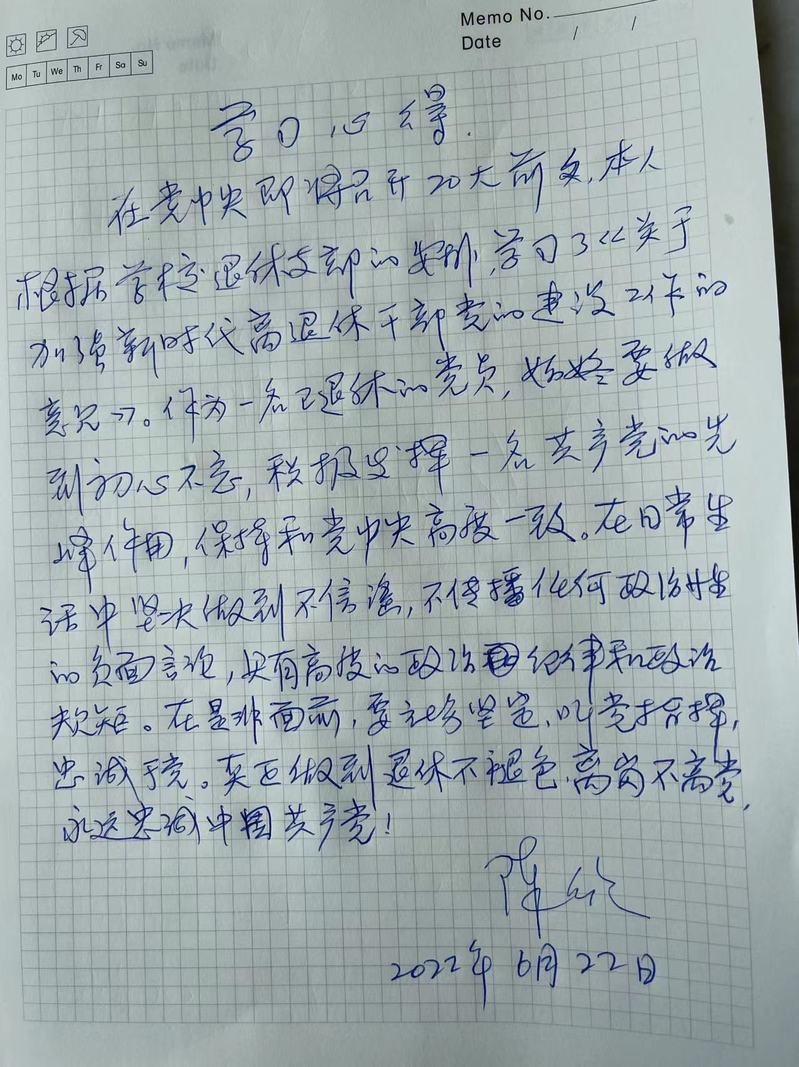 Memo No.
Date / /
Mo Tu We Th Fr Sa Su
学习心得.
在党中央即将召开20大前夕,本人
根据学校退休支部的安排,学习了《关于
加强新时代离退休干部党的建设工作的
意见》。作为一名已退休的党员,始终要做
到初心不忘,积极发挥一名共产党的先
峰作用,保持和党中央高度一致。在日常生
活中坚决做到不信谣,不传播任何政治性
的负面言论,具有高度的政治纪律和政治
规矩。在是非面前,要立场坚定,听党指挥,
忠诚于党。真正做到退休不褪色,离岗不离党,
永远忠诚中国共产党!
陈
2022年6月22日